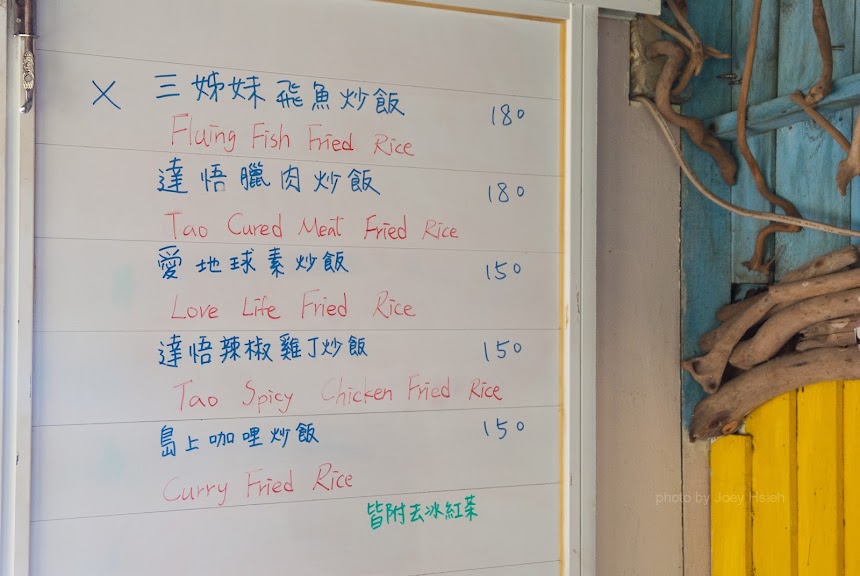 X 三姊妹飛魚炒飯 180
Fluing Fish Fried Rice
達悟臘肉炒飯 180
Tao Cured Meat Fried Rice
愛地球素炒飯 150
Love Life Fried Rice
達悟辣椒雞丁炒飯 150
Tao Spicy Chicken Fried Rice
島上咖哩炒飯 150
Curry Fried Rice
皆附去冰紅茶
photo by Joey Hsieh